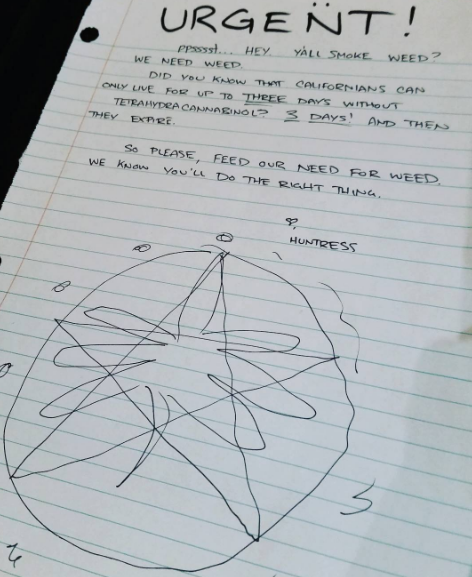 URGENT!
ppsssst... HEY. Y'ALL SMOKE WEED?
WE NEED WEED.
DID YOU KNOW THAT CALIFORNIANS CAN
ONLY LIVE FOR UP TO THREE DAYS WITHOUT
TETRAHYDRACANNABINOL? 3 DAYS! AND THEN
THEY EXPIRE.
SO PLEASE, FEED OUR NEED FOR WEED.
WE KNOW YOU'LL DO THE RIGHT THING.
HUNTRESS